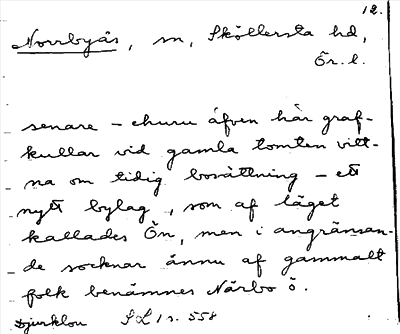 12.
Norrbyås, sn, Sköllersta hd,
Ör. l.
senare – churu äfven här graf-
kullar vid gamla tomten vitt-
na om tidig bosättning – ett
nytt bylag, som af läget
kallades Ön, men i angränsan-
de socknar ännu af gammalt
folk benämnes Närbo ö.
Djurklou SL 1 s. 558